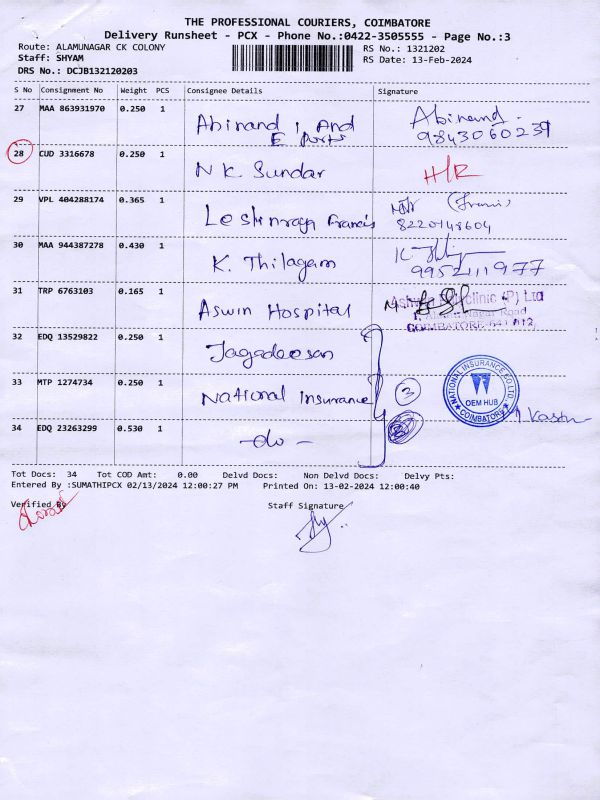 THE PROFESSIONAL COURIERS, COIMBATORE
Delivery Runsheet - PCX - Phone No.:0422-3505555 - Page No.:3
Route: ALAMUNAGAR CK COLONY RS No.: 1321202
Staff: SHYAM RS Date: 13-Feb-2024
DRS No.: DCJB132120203
S No Consignment No Weight PCS Consignee Details Signature
27 MAA 863931970 0.250 1 Abinand, And Abinand.
E Ports 9843060239
28 CUD 3316678 0.250 1 N K. Sundar H/R
29 VPL 404288174 0.365 1 Francis (Francis)
8220148604
30 MAA 944387278 0.430 1 K. Thilagam
9952111977
31 TRP 6763103 0.165 1 Aswin Hospital Clinic (P) Ltd
Nagar Road
COIMBATORE-641 012
32 EDQ 13529822 0.250 1 Jagadeesan
33 MTP 1274734 0.250 1 National Insurance 3 NATIONAL INSURANCE CO LTD
OEM HUB
COIMBATORE
34 EDQ 23263299 0.530 1 -do-
Tot Docs: 34 Tot COD Amt: 0.00 Delvd Docs: Non Delvd Docs: Delvy Pts:
Entered By :SUMATHIPCX 02/13/2024 12:00:27 PM Printed On: 13-02-2024 12:00:40
Verified By Staff Signature